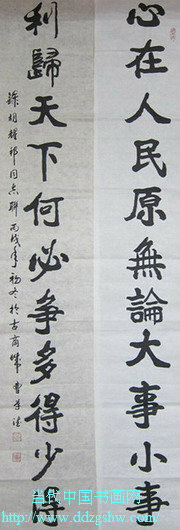 心在人民原無論大事小事
利歸天下何必争多得少得
錄胡耀邦同志聯 丙戌年初冬於古商城 曹
当代中国书画网
www.ddzgshw.com